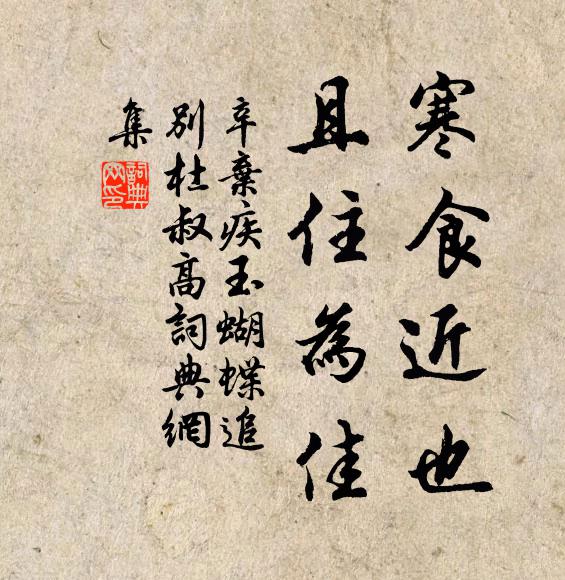 寒食近也
且住為佳
辛棄疾玉蝴蝶追
別杜叔高詞典網
集
詞典網印